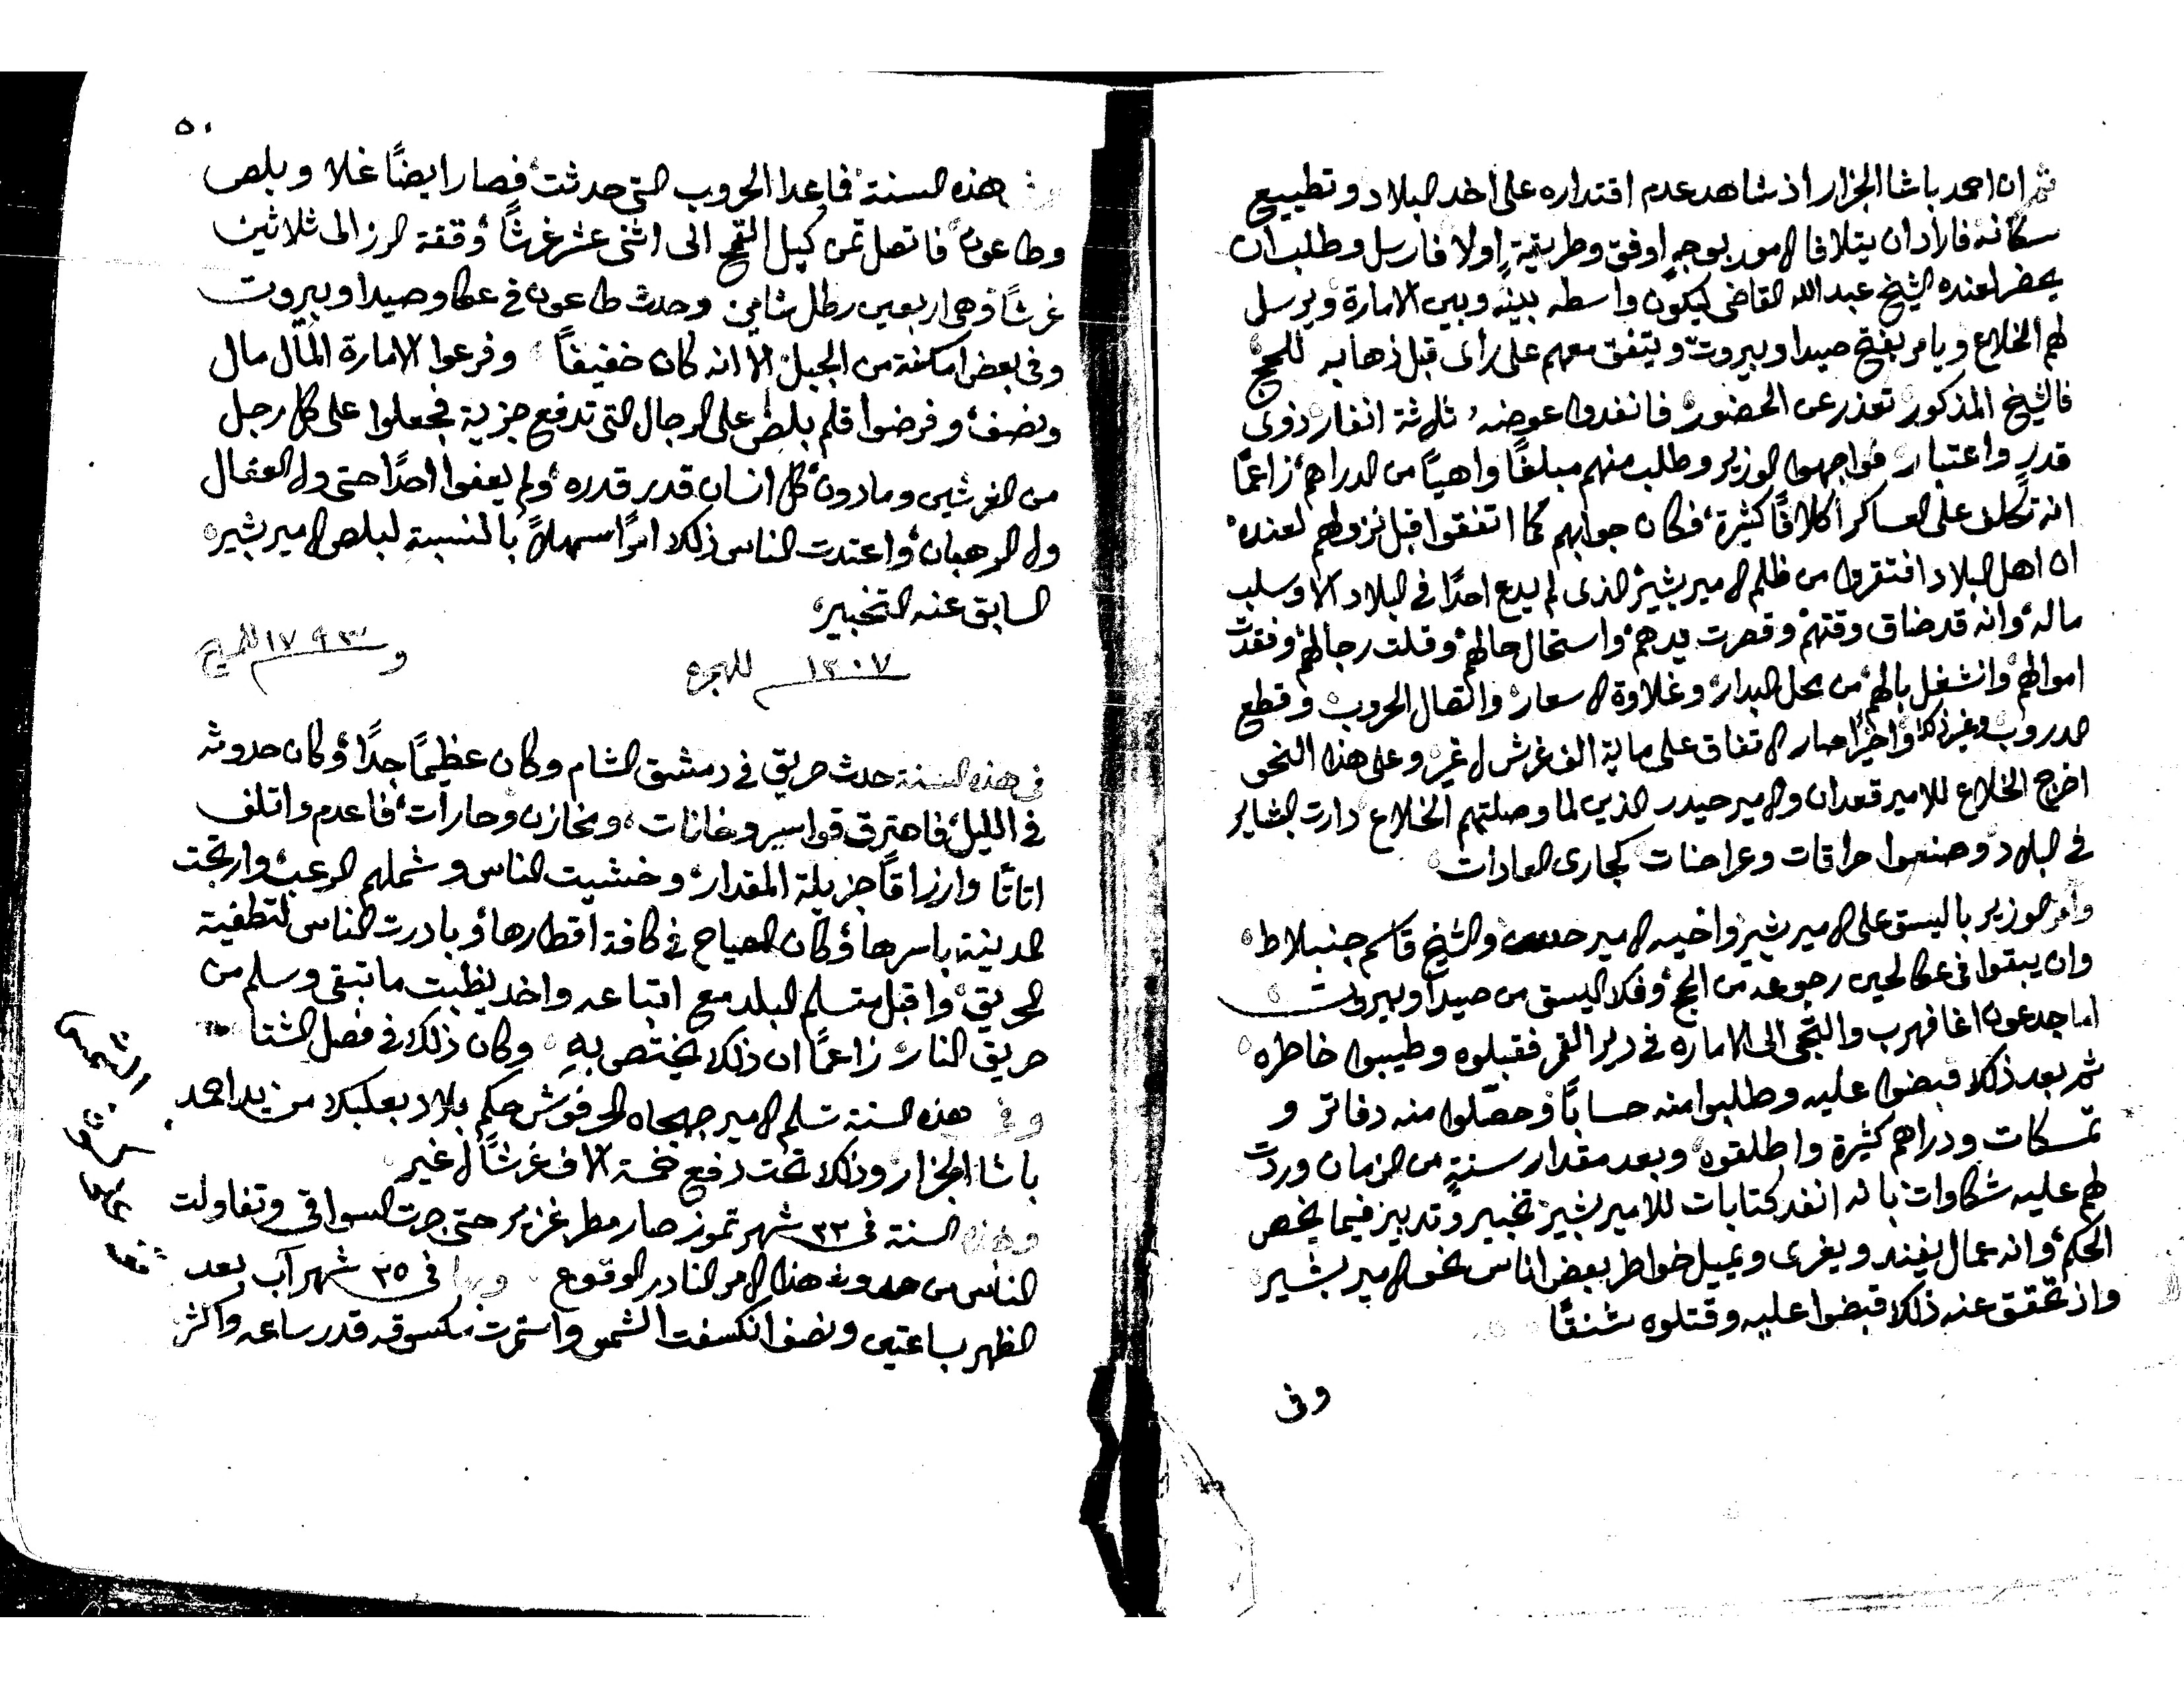 ثم ان احمد باشا الجزار اذ شاهد عدم اقتداره على اخد البلاد وتطييع
سكانه فاراد ان يتلافا الامور بوجهٍ اوفق وطريقيةٍ اولا فارسل وطلب ان
يحضر لعنده الشيخ عبد الله القاضي ليكون واسطه بينه وبين الامارة ويرسل
لهم الخلاع ويامر بفتح صيدا وبيروت ويتفق معهم على راى قبل ذهابه للحج
فالشيخ المذكور تعذر عن الحضور فانفدوا عوضه ثلاثة انفار ذوى
قدرٍ واعتبار فواجهوا الوزير وطلب منهم مبلغًا واهيًا من الدراهم زاعمًا
انه تكلف على العساكر اكلافًا كثيرة فكان جوابهم كما اتفقوا قبل نزولهم لعنده
ان اهل البلاد افتقروا من ظلم الامير بشير الذى لم يدع احدًا في البلاد الا وسلب
ماله وانه قد ضاق وقتهم وقصرت يدهم واستحال حالهم وقلت رجالهم ونفدت
اموالهم وانشغل بالهم من محل البدار وغلاوة الاسعار واتصال الحروب وقطع
الدروب وغير ذلك واخيرًا صار الاتفاق على ماية الف غرش لا غير وعلى هذا النحو
اخرج الخلاع للامير قعدان والامير حيدر الذين لما وصلتهم الخلاع دارت البشاير
في البلاد وصنعوا حراقات وعراضات كجارى العادات
وامر الوزير باليسق على الامير بشير واخيه الامير حسن والشيخ قاسم جنبلاط
وان يبقوا في عكا لحين رجوعه من الحج وفك اليسق من صيدا وبيروت
اما جدعون اغا فهرب والتجى الى الاماره في دير القمر فقبلوه وطيبوا خاطره
ثم بعد ذلك قبضوا عليه وطلبوا منه حسابًا وحصّلوا منه دفاتر و
تمسكات ودراهم كثيرة واطلقوه وبعد مقدار سنةٍ من الزمان وردت
لهم عليه شكاوات بانه انفد كتابات للامير بشير تخبير وتدبير فيما يخص
الحكم وانه عمال يفند ويغرى ويميل خواطر بعض اناس نحو الامير بشير
واذ تحقق عنه ذلك قبضوا عليه وقتلوه شنقًا
وفى
٥٠
هذه السنة فاعدا الحروب التى حدثت فصار ايضًا غلا وبلص
وطاعون فاتصل ثمن كيل القمح الى اثنى عشر غرشًا وقفة الرز الى ثلاثين
غرشًا وهى اربعين رطل شامى وحدث طاعون في عكا وصيدا وبيروت
وفى بعض امكنة من الجبل الا انه كان خفيفًا وفرعوا الامارة المال مال
ونصف وفرضوا قلم بلص على الرجال التى تدفع جزية فجعلوا على كل رجل
من الغرشين ومادون كل انسان قدر قدره ولم يعفوا احدًا حتى ولا العقال
ولا الرهبان واعتدت الناس ذلك امرًا سهلاً بالنسبة لبلص الامير بشير
السابق عنه التخبير
١٢٠٧ للهجرة و ١٧٩٣ للمسيح
في هذه السنة حدث حريق في دمشق الشام وكان عظيمًا جدًا وكان حدوثه
في الليل فاحترق قواسير وخانات ومخازن وحارات فاعدم واتلف
اثاثًا وارزاقًا جزيلة المقدار وخشيت الناس وشملهم الرعب وارتجت
المدينه باسرها وكان الصياح في كافة اقطارها وبادرت الناس لتطفية
الحريق واقبل متسلم البلد مع اتباعه واخد يظبت ما تبقى وسلم من
حريق النار زاعمًا ان ذلك يختص بهِ وكان ذلك في فصل الشتا
وفى هذه السنة تسلم الامير جهجاه الحرفوش حكم بلاد بعلبك من يد احمد
باشا الجزار وذلك تحت دفع خمسة الاف غرشًا لا غير
وهذه السنة في ٢٢ شهر تموز صار مطر غزير حتى جرت السواقى وتفاولت
الناس من حدوث هذا الامر النادر الوقوع وبها في ٢٥ شهر آب بعد
الظهر بساعتين ونصف انكسفت الشمس واستمرت مكسوفه قدر ساعه واكثر